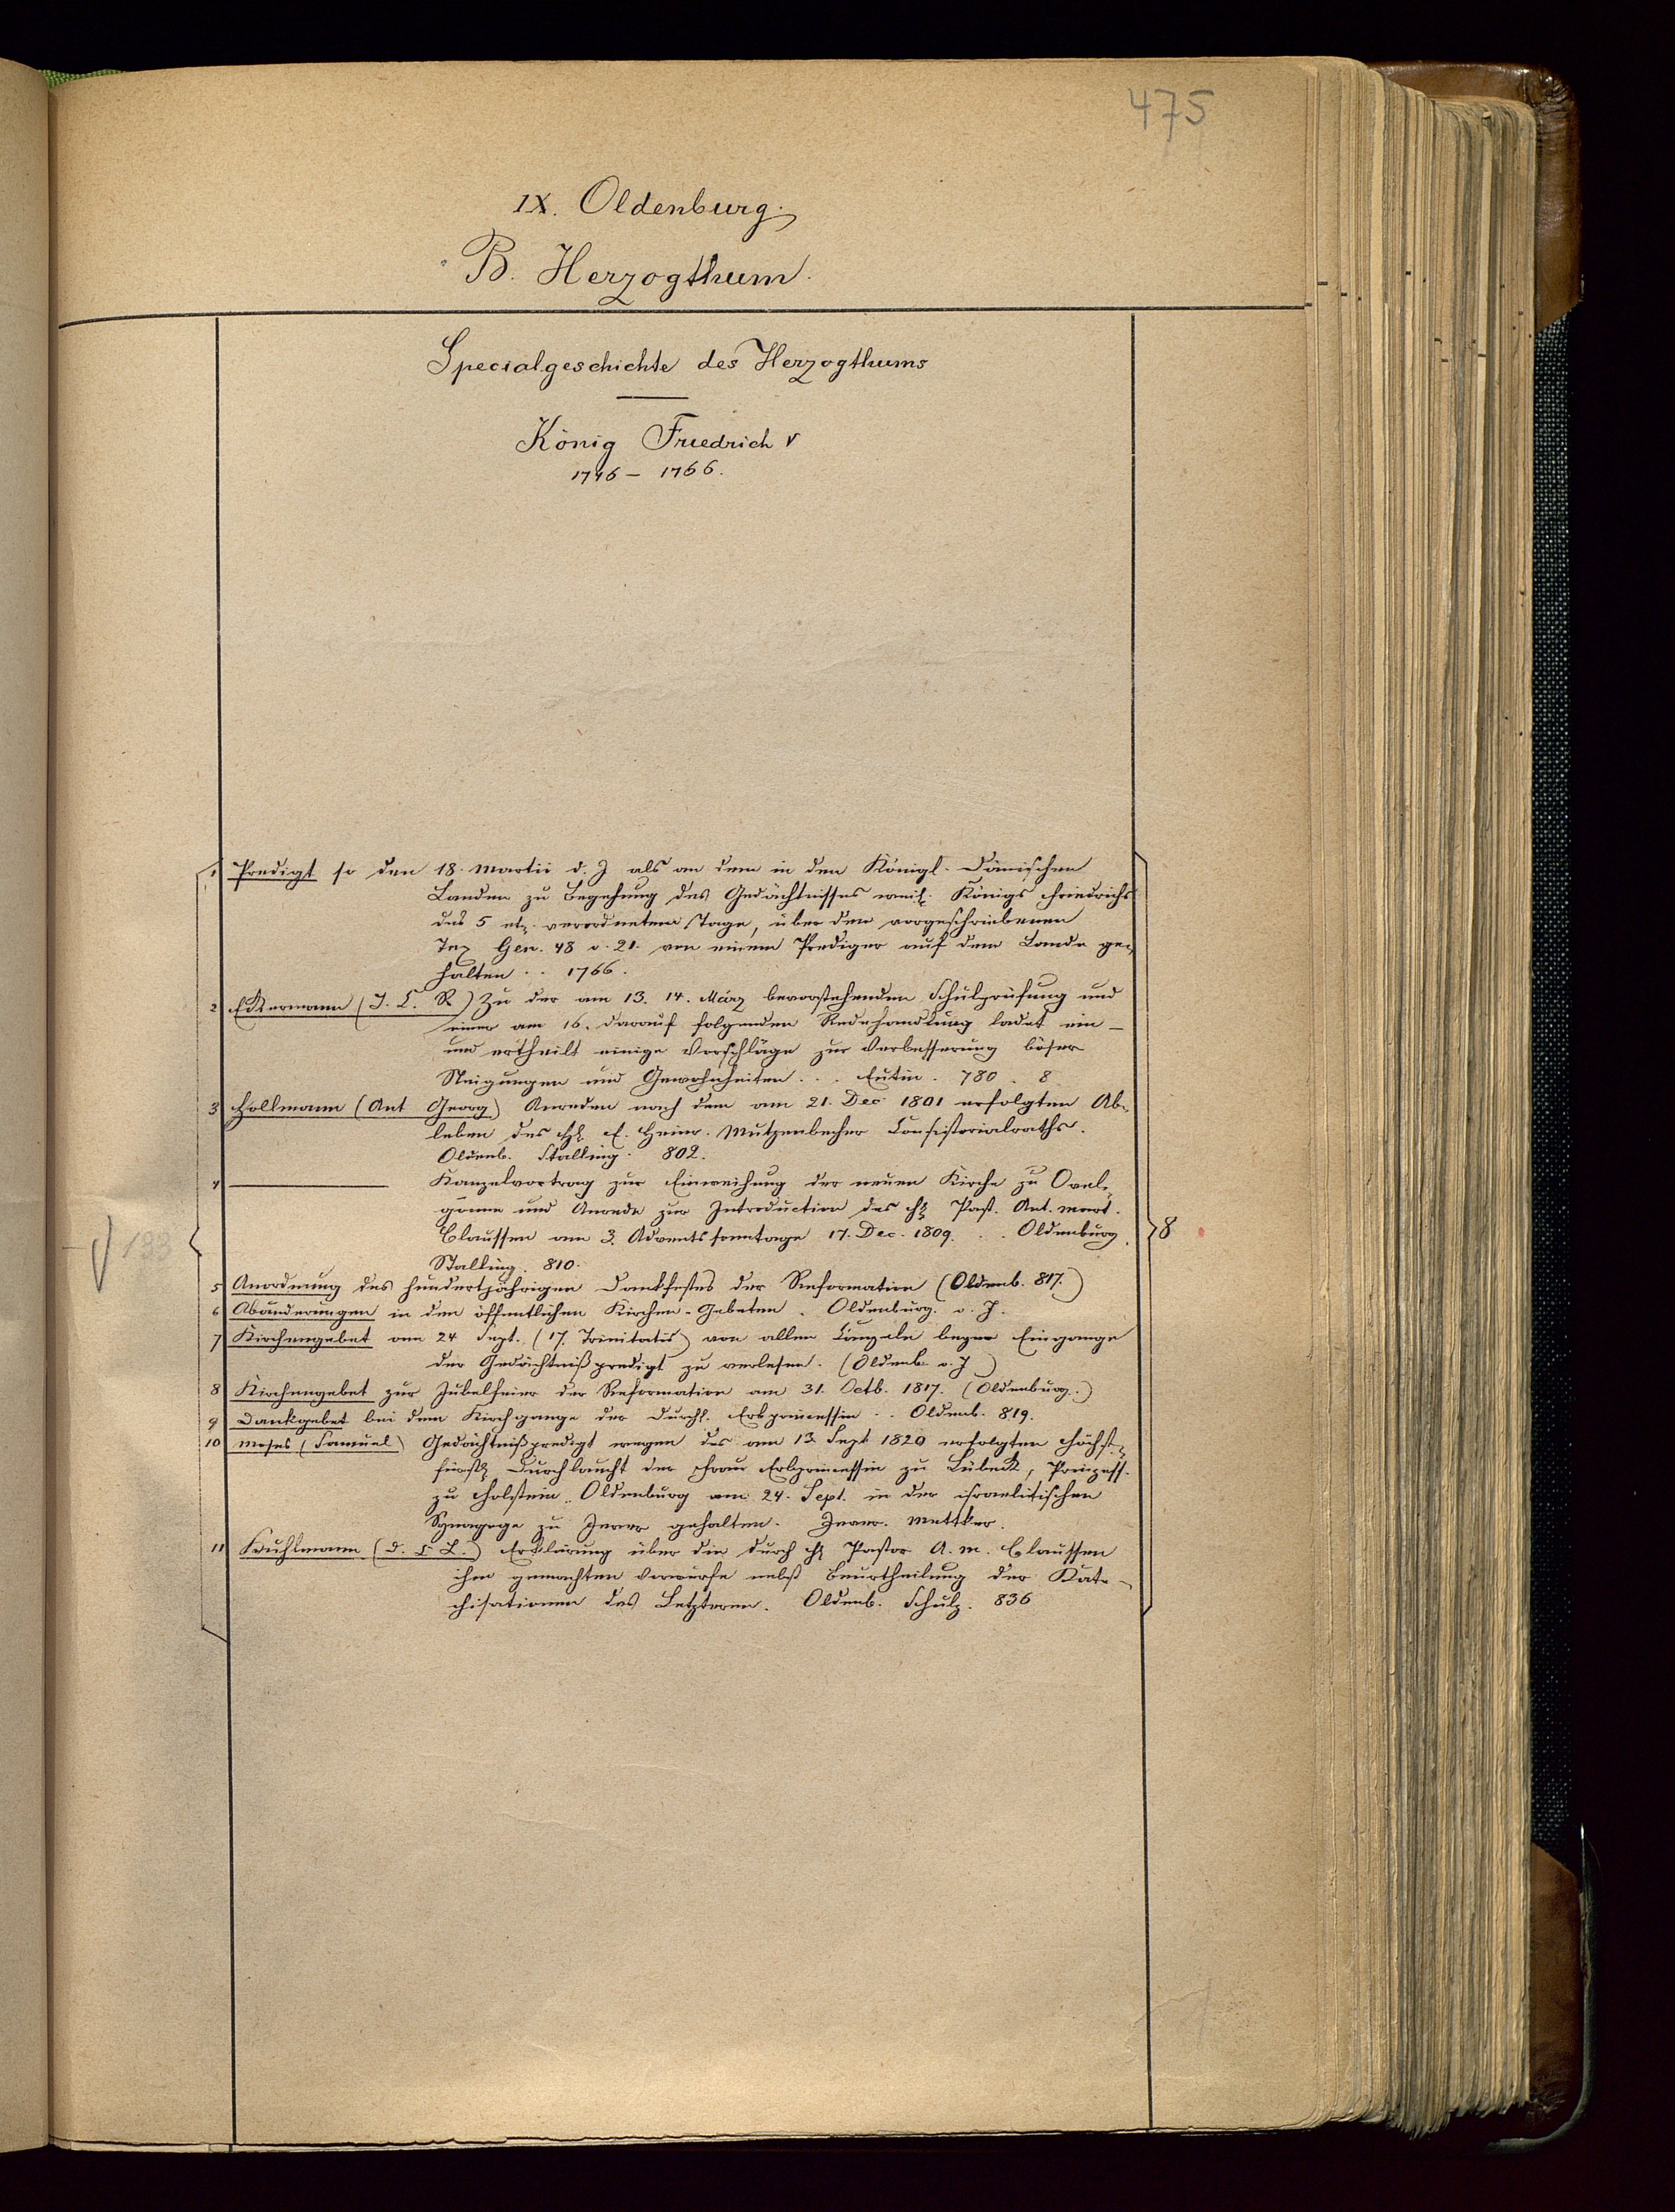 475
IX. Oldenburg.
B. Herzogthum.
Specialgeschichte des Herzogthums
König Friedrich V
1746 - 1766.
1 Predigt so den 18. Martii d. J als an dem in den Königl. Dänischen
Landen zu Begehung des Gedächtnisses weil. Königs Friedrichs
des 5 etz. verordneten Tage, über den vorgeschriebenen
Tex Gen. 48 v. 21. von einem Prediger auf dem Lande ge-
halten . . 1766.
2 Eckermann (J. C. R) Zu der am 13. 14. März bevorstehenden Schulprüfung und
einer am 16. darauf folgenden Redehandlung ladet ein -
und ertheilt einige Vorschläge zur Verbesserung böser
Neigungen und Gewohnheiten . . . Eutin. 780. 8
3 Hollmann (Ant Georg) Anreden nach dem am 21. Dec 1801 erfolgten Ab-
leben des H. E. Heinr. Mutzenbecher Consistorialraths.
Oldenb. Stalling. 802.
4 ——— Kanzelvortrag zur Einweihung der neuen Kirche zu Ovel-
gönne und Anrede zur Introduction des H Past. Ant. Mart.
Claussen am 3. Adventssonntage 17. Dec. 1809. . . Oldenburg.
Stalling. 810.
5 Anordnung des hundertjährigen Dankfestes der Reformation (Oldenb. 817.)
6 Abänderungen in den öffentlichen Kirchen-Gebeten. Oldenburg. o. J.
7 Kirchengebet am 24 Sept. (17. Trinitatis) von allen Canzeln beym Eingange
der Gedächtnißpredigt zu verlesen. (Oldenb. o. J)
8 Kirchengebet zur Jubelfeier der Reformation am 31. Octb. 1817. (Oldenburg.)
9 Dankgebet bei dem Kirchgange der Durchl. Erbprincessin . . Oldenb. 819.
10 Moses (Samuel) Gedächtnißpredigt wegen des am 13 Sept 1820 erfolgten Höchst-
fürstl Durchlaucht der Frau Erbprincessin zu Lübeck, Prinzess.
zu Holstein-Oldenburg am 24. Sept. in der israelitischen
Synagoge zu Jever gehalten. Jever. Mettker.
11 Kuhlmann (D. C L.) Erklärung über die durch H Pastor A. M. Claussen
ihm gemachten Vorwürfe nebst Beurtheilung der Kate-
chisationen des Letzteren. Oldenb. Schulz. 836
8